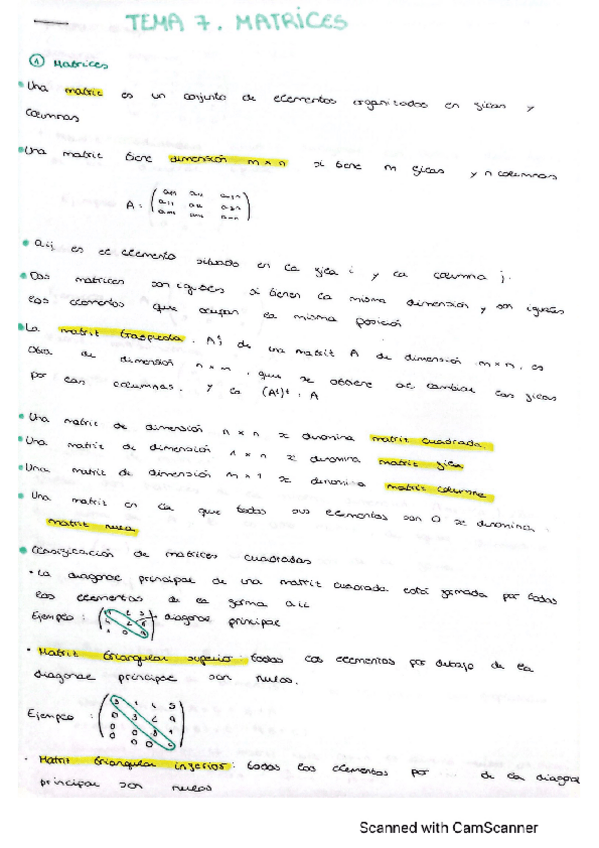 TEMA 7. MATRICES
① Matrices
Una matriz es un conjunto de elementos organizados en filas y
columnas
Una matriz tiene dimensión m x n si tiene m filas y n columnas
A =
aij es el elemento situado en la fila i y la columna j.
Dos matrices son iguales si tienen la misma dimensión y son iguales
los elementos que ocupan la misma posición
La matriz traspuesta, At, de una matriz A de dimensión m x n, es
otra de dimensión n x m, que se obtiene al cambiar las filas
por las columnas. Y la (At)t = A
Una matriz de dimensión n x n se denomina matriz cuadrada.
Una matriz de dimensión 1 x n se denomina matriz fila
Una matriz de dimensión m x 1 se denomina matriz columna
Una matriz en la que todos sus elementos son 0 se denomina
matriz nula.
Clasificación de matrices cuadradas
· La diagonal principal de una matriz cuadrada está formada por todos
los elementos de la forma aii
Ejemplo: diagonal principal
· Matriz triangular superior: todos los elementos por debajo de la
diagonal principal son nulos.
Ejemplo:
· Matriz triangular inferior: todos los elementos por de la diagonal
principal son nulos
Scanned with CamScanner